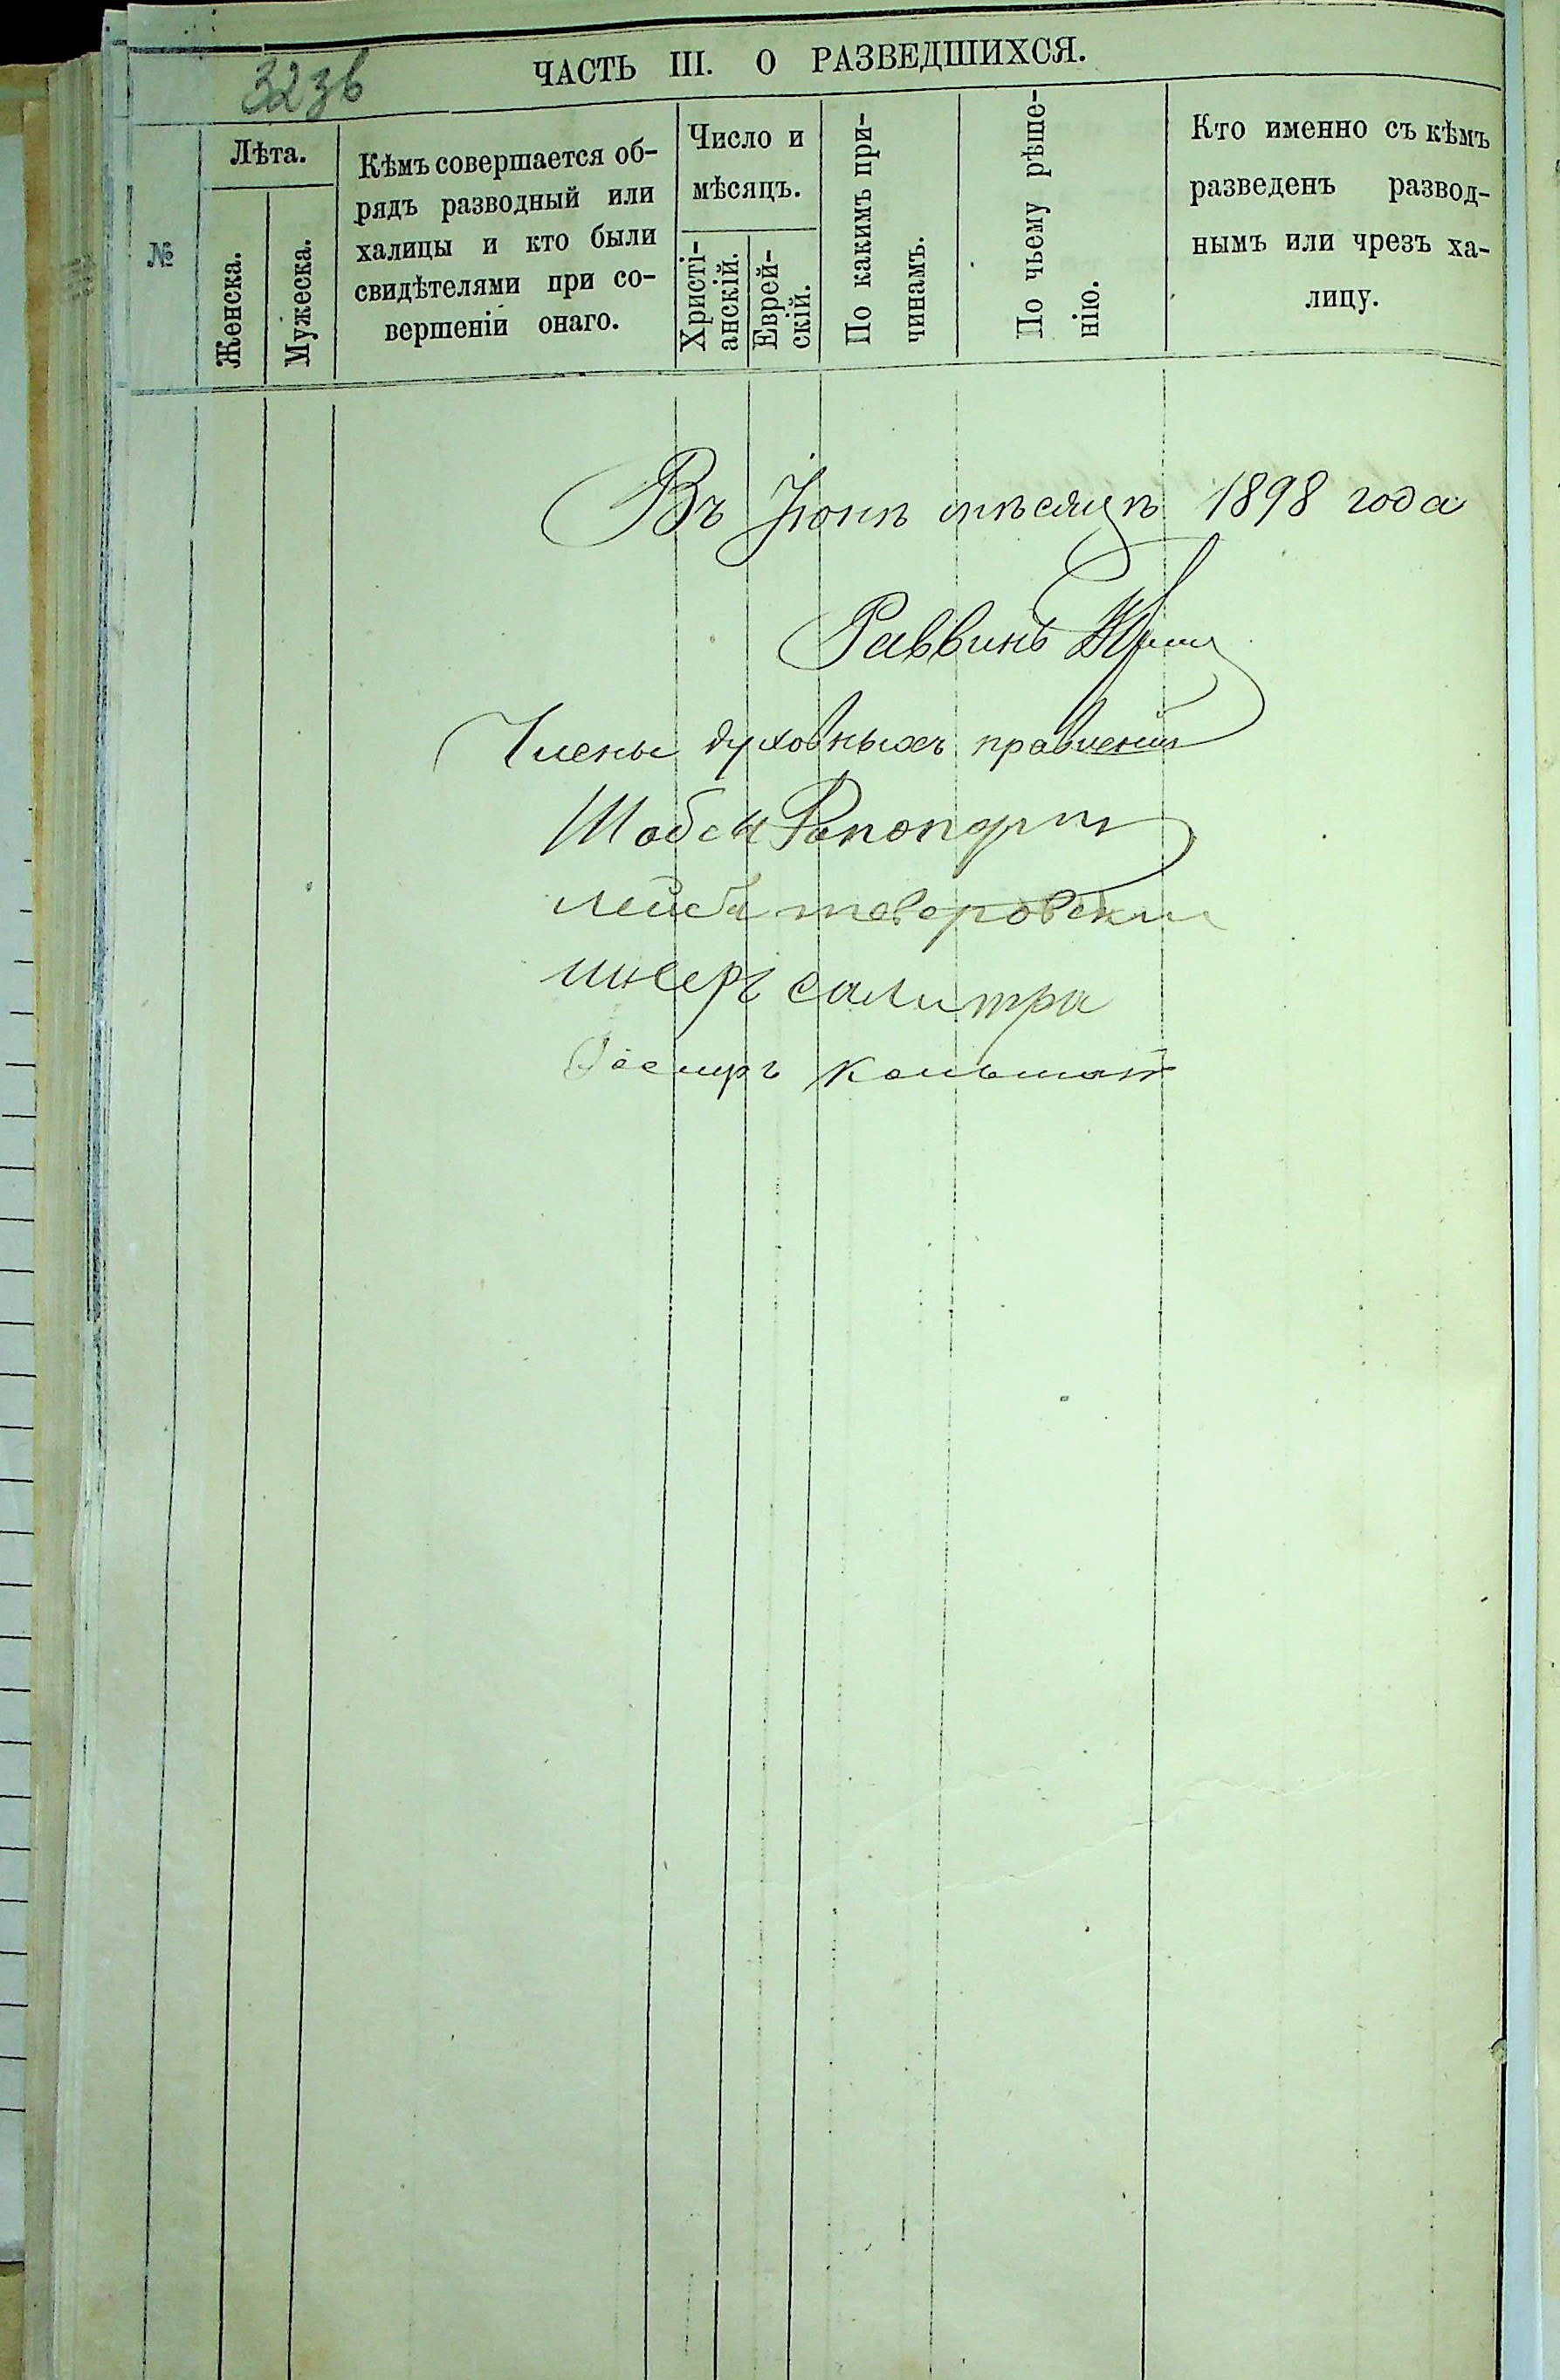 323в
ЧАСТЬ III. О РАЗВЕДШИХСЯ.
№
Лѣта.
Женска.
Мужеска.
Кѣмъ совершается об-
рядъ разводный или
халицы и кто были
свидѣтелями при со-
вершеніи онаго.
Число и
мѣсяцъ.
Христі-
анскій.
Еврей-
скій.
По какимъ при-
чинамъ.
По чьему рѣше-
нію.
Кто именно съ кѣмъ
разведенъ развод-
нымъ или чрезъ ха-
лицу.
Въ Іюнѣ мѣсяцѣ 1898 года
Раввинъ
Члены духовныхъ правленій
Шабси Рапопортъ
Лейба
салитра